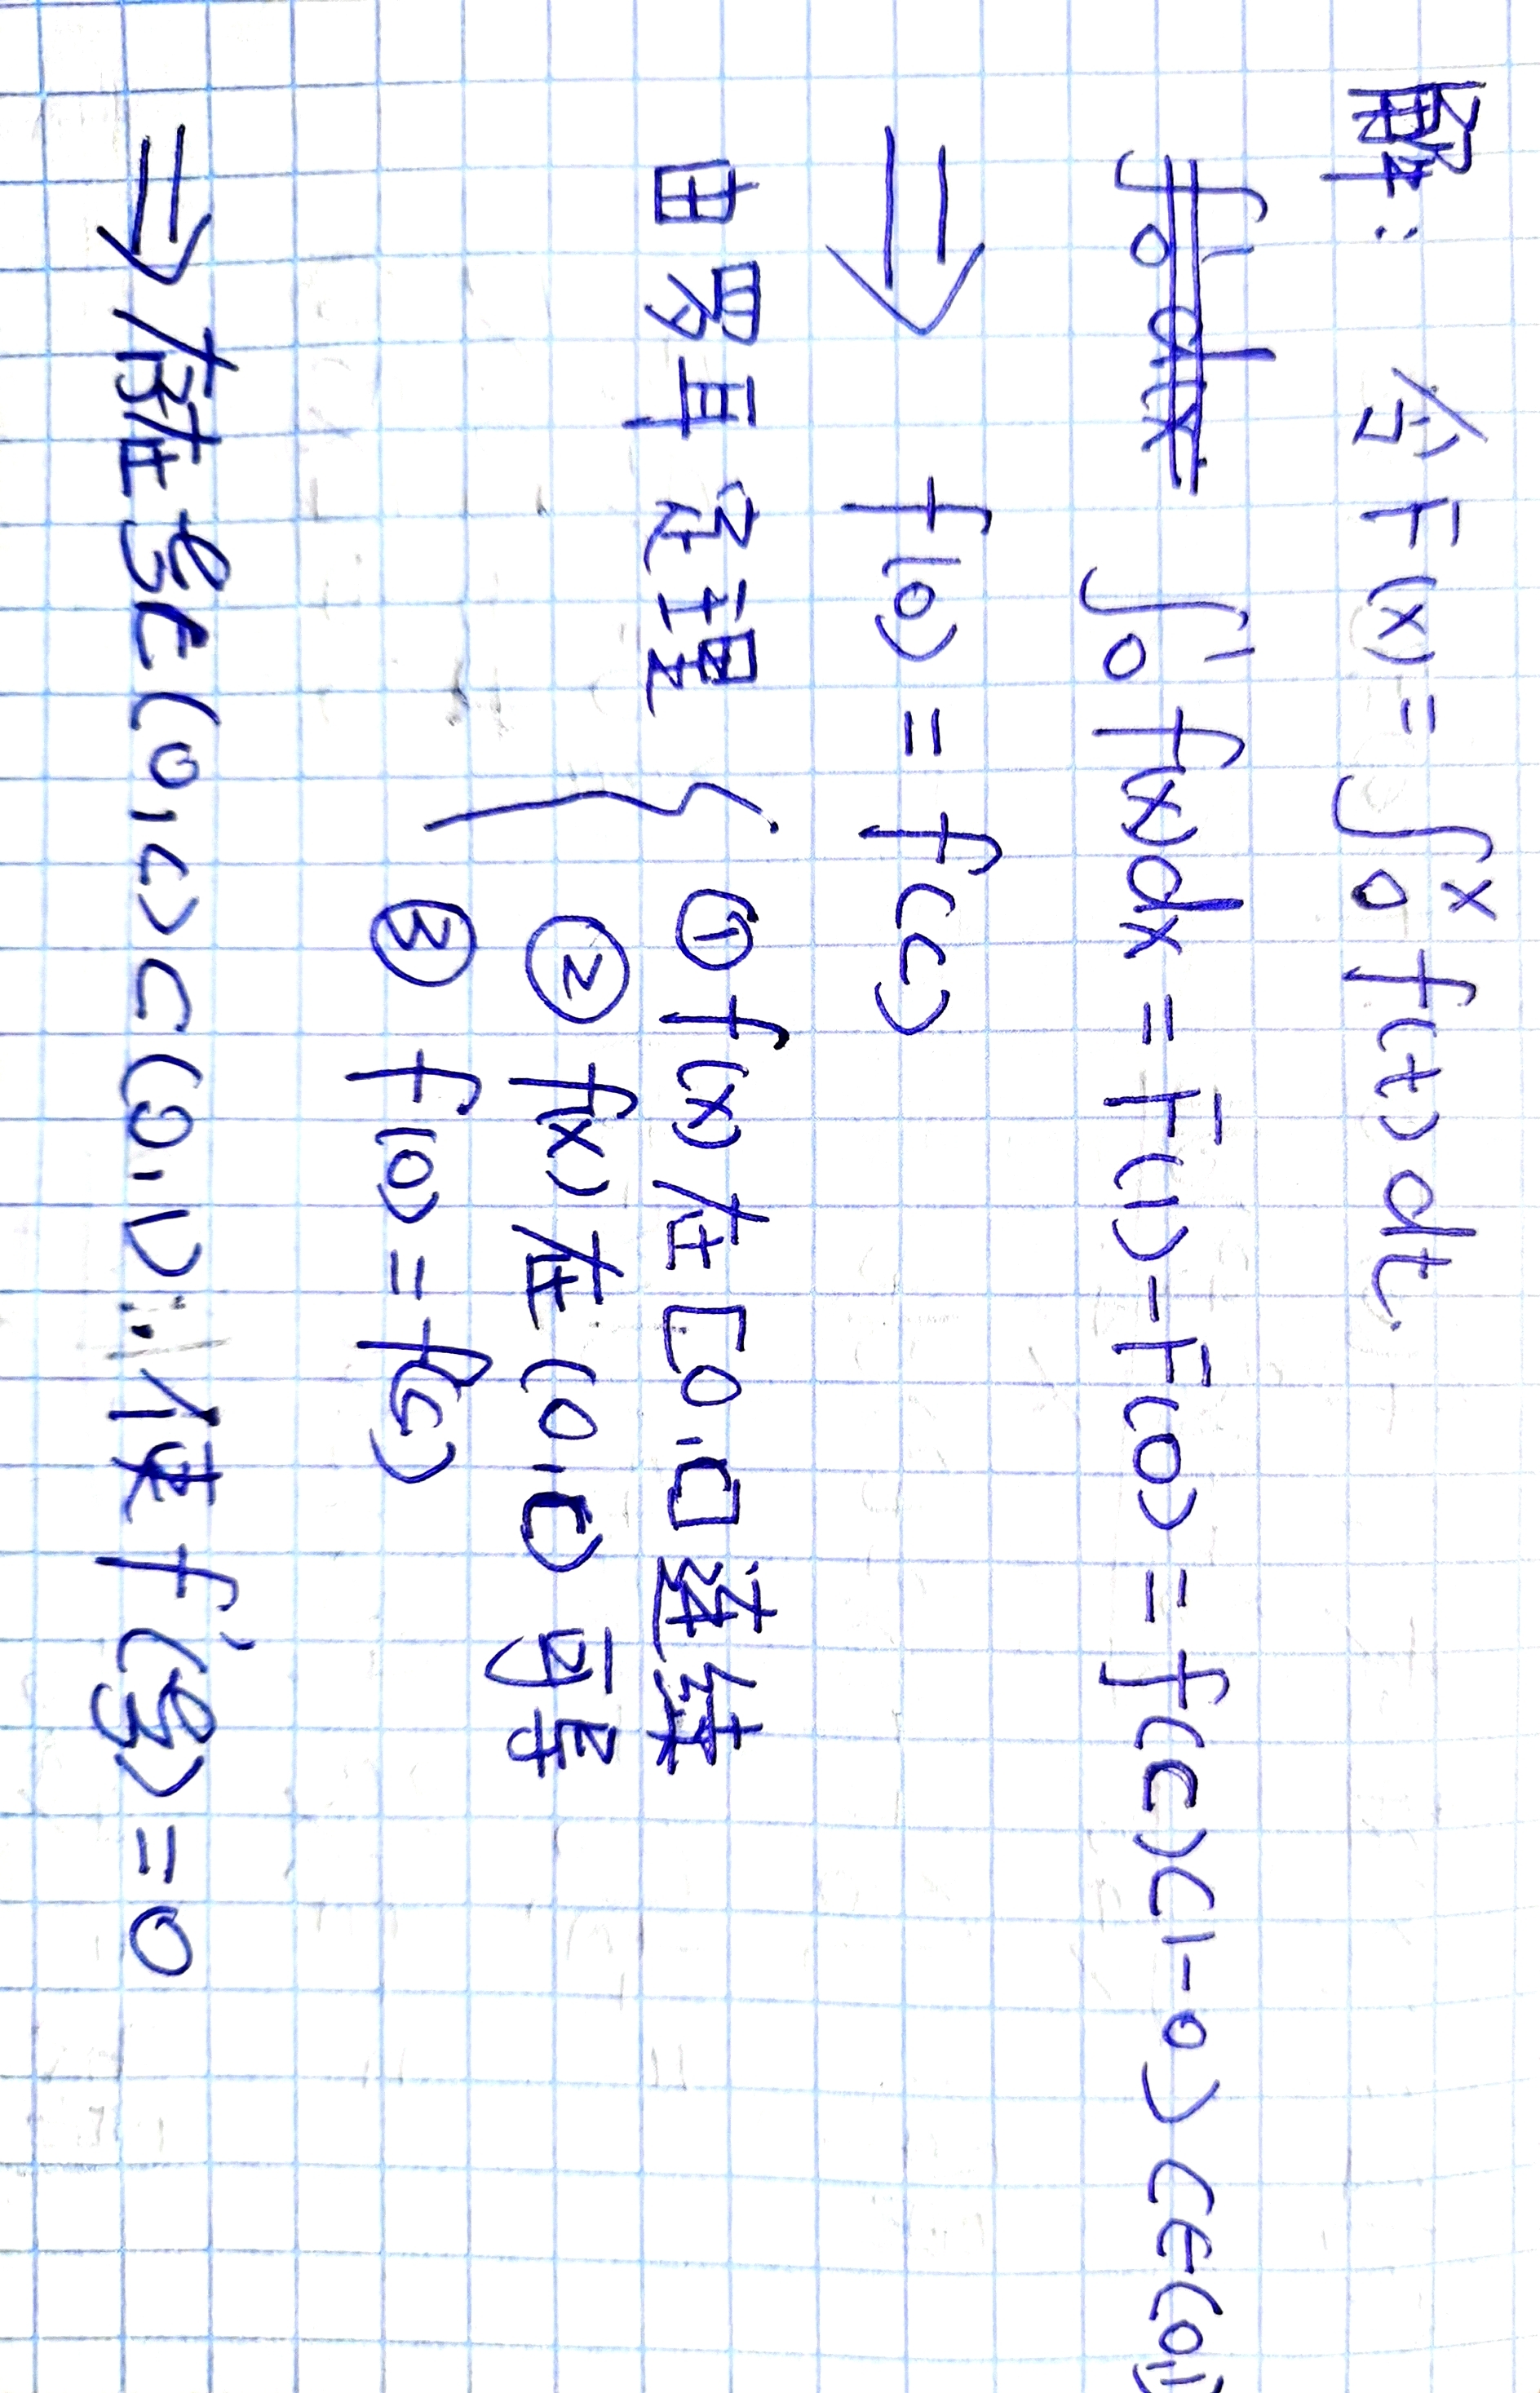 解: 令 F(x) = ∫₀ˣ f(t) dt.
∫₀¹ f(x)dx = F(1) - F(0) = f(c)(1-0) c∈(0,1)
⇒ f(0) = f(c)
由罗耳定理 { ① f(x) 在 [0,c] 连续
② f(x) 在 (0,c) 可导
③ f(0) = f(c)
⇒ 存在 ξ∈(0,c)⊂(0,1), 使 f'(ξ) = 0